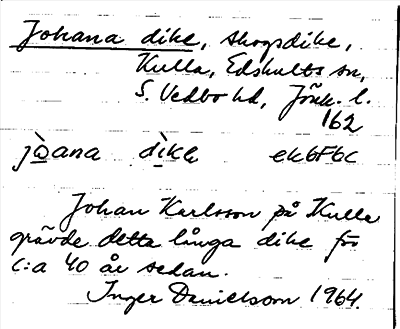 Johana dike, skogsdike,
Kulla, Edshults sn,
S. Vedbo hd, Jönk. l.
162
jòana dìke ek6F6c
Johan Karlsson på Kulla
grävde detta långa dike för
c:a 40 år sedan.
Inger Danielsson 1964.